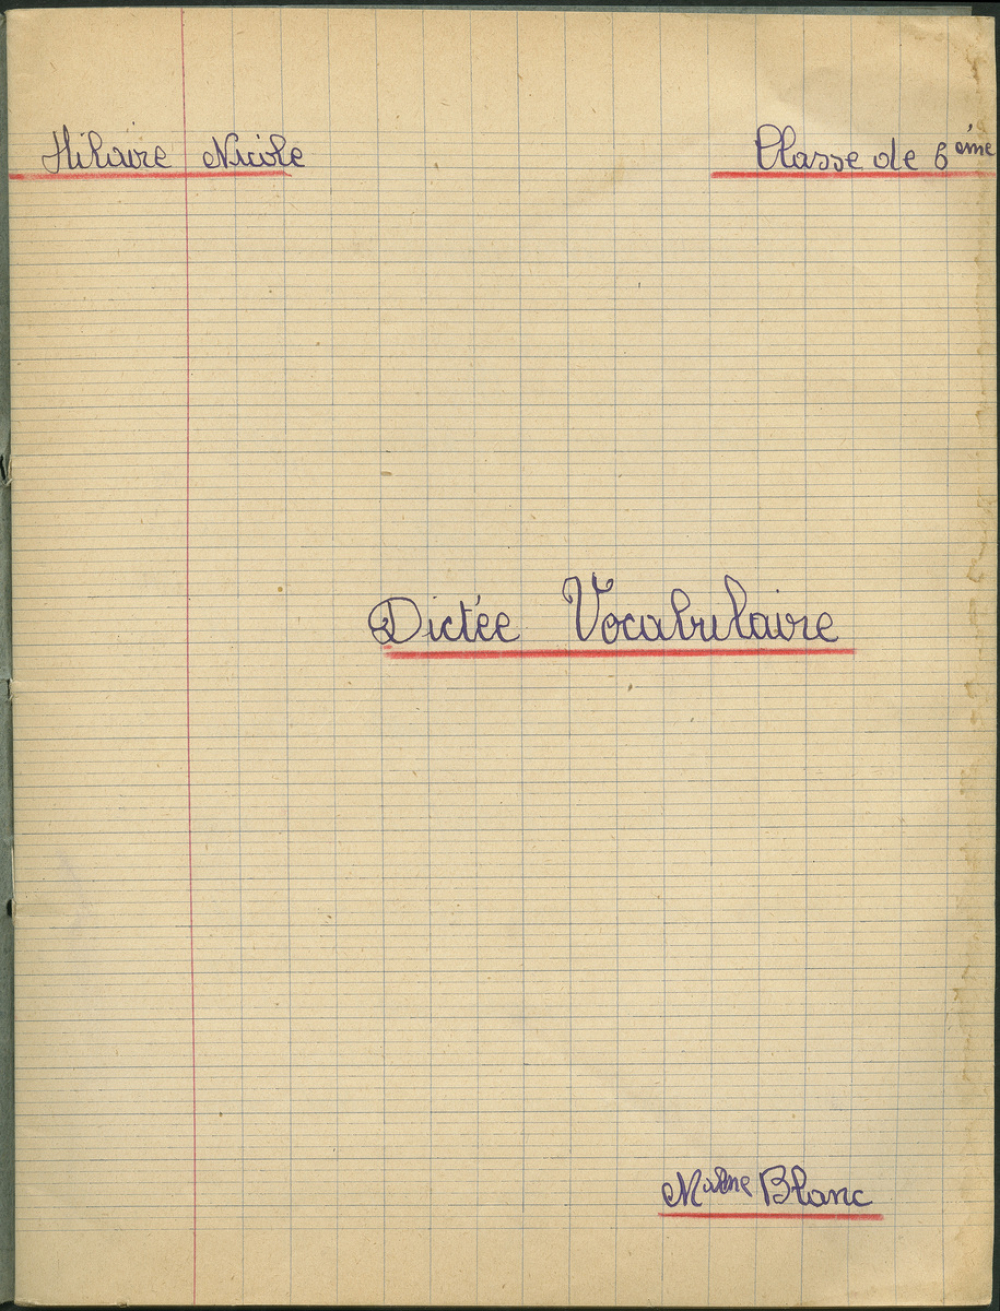 Hilaire Nicole
Classe de 6ème
Dictée Vocabulaire
Blanc